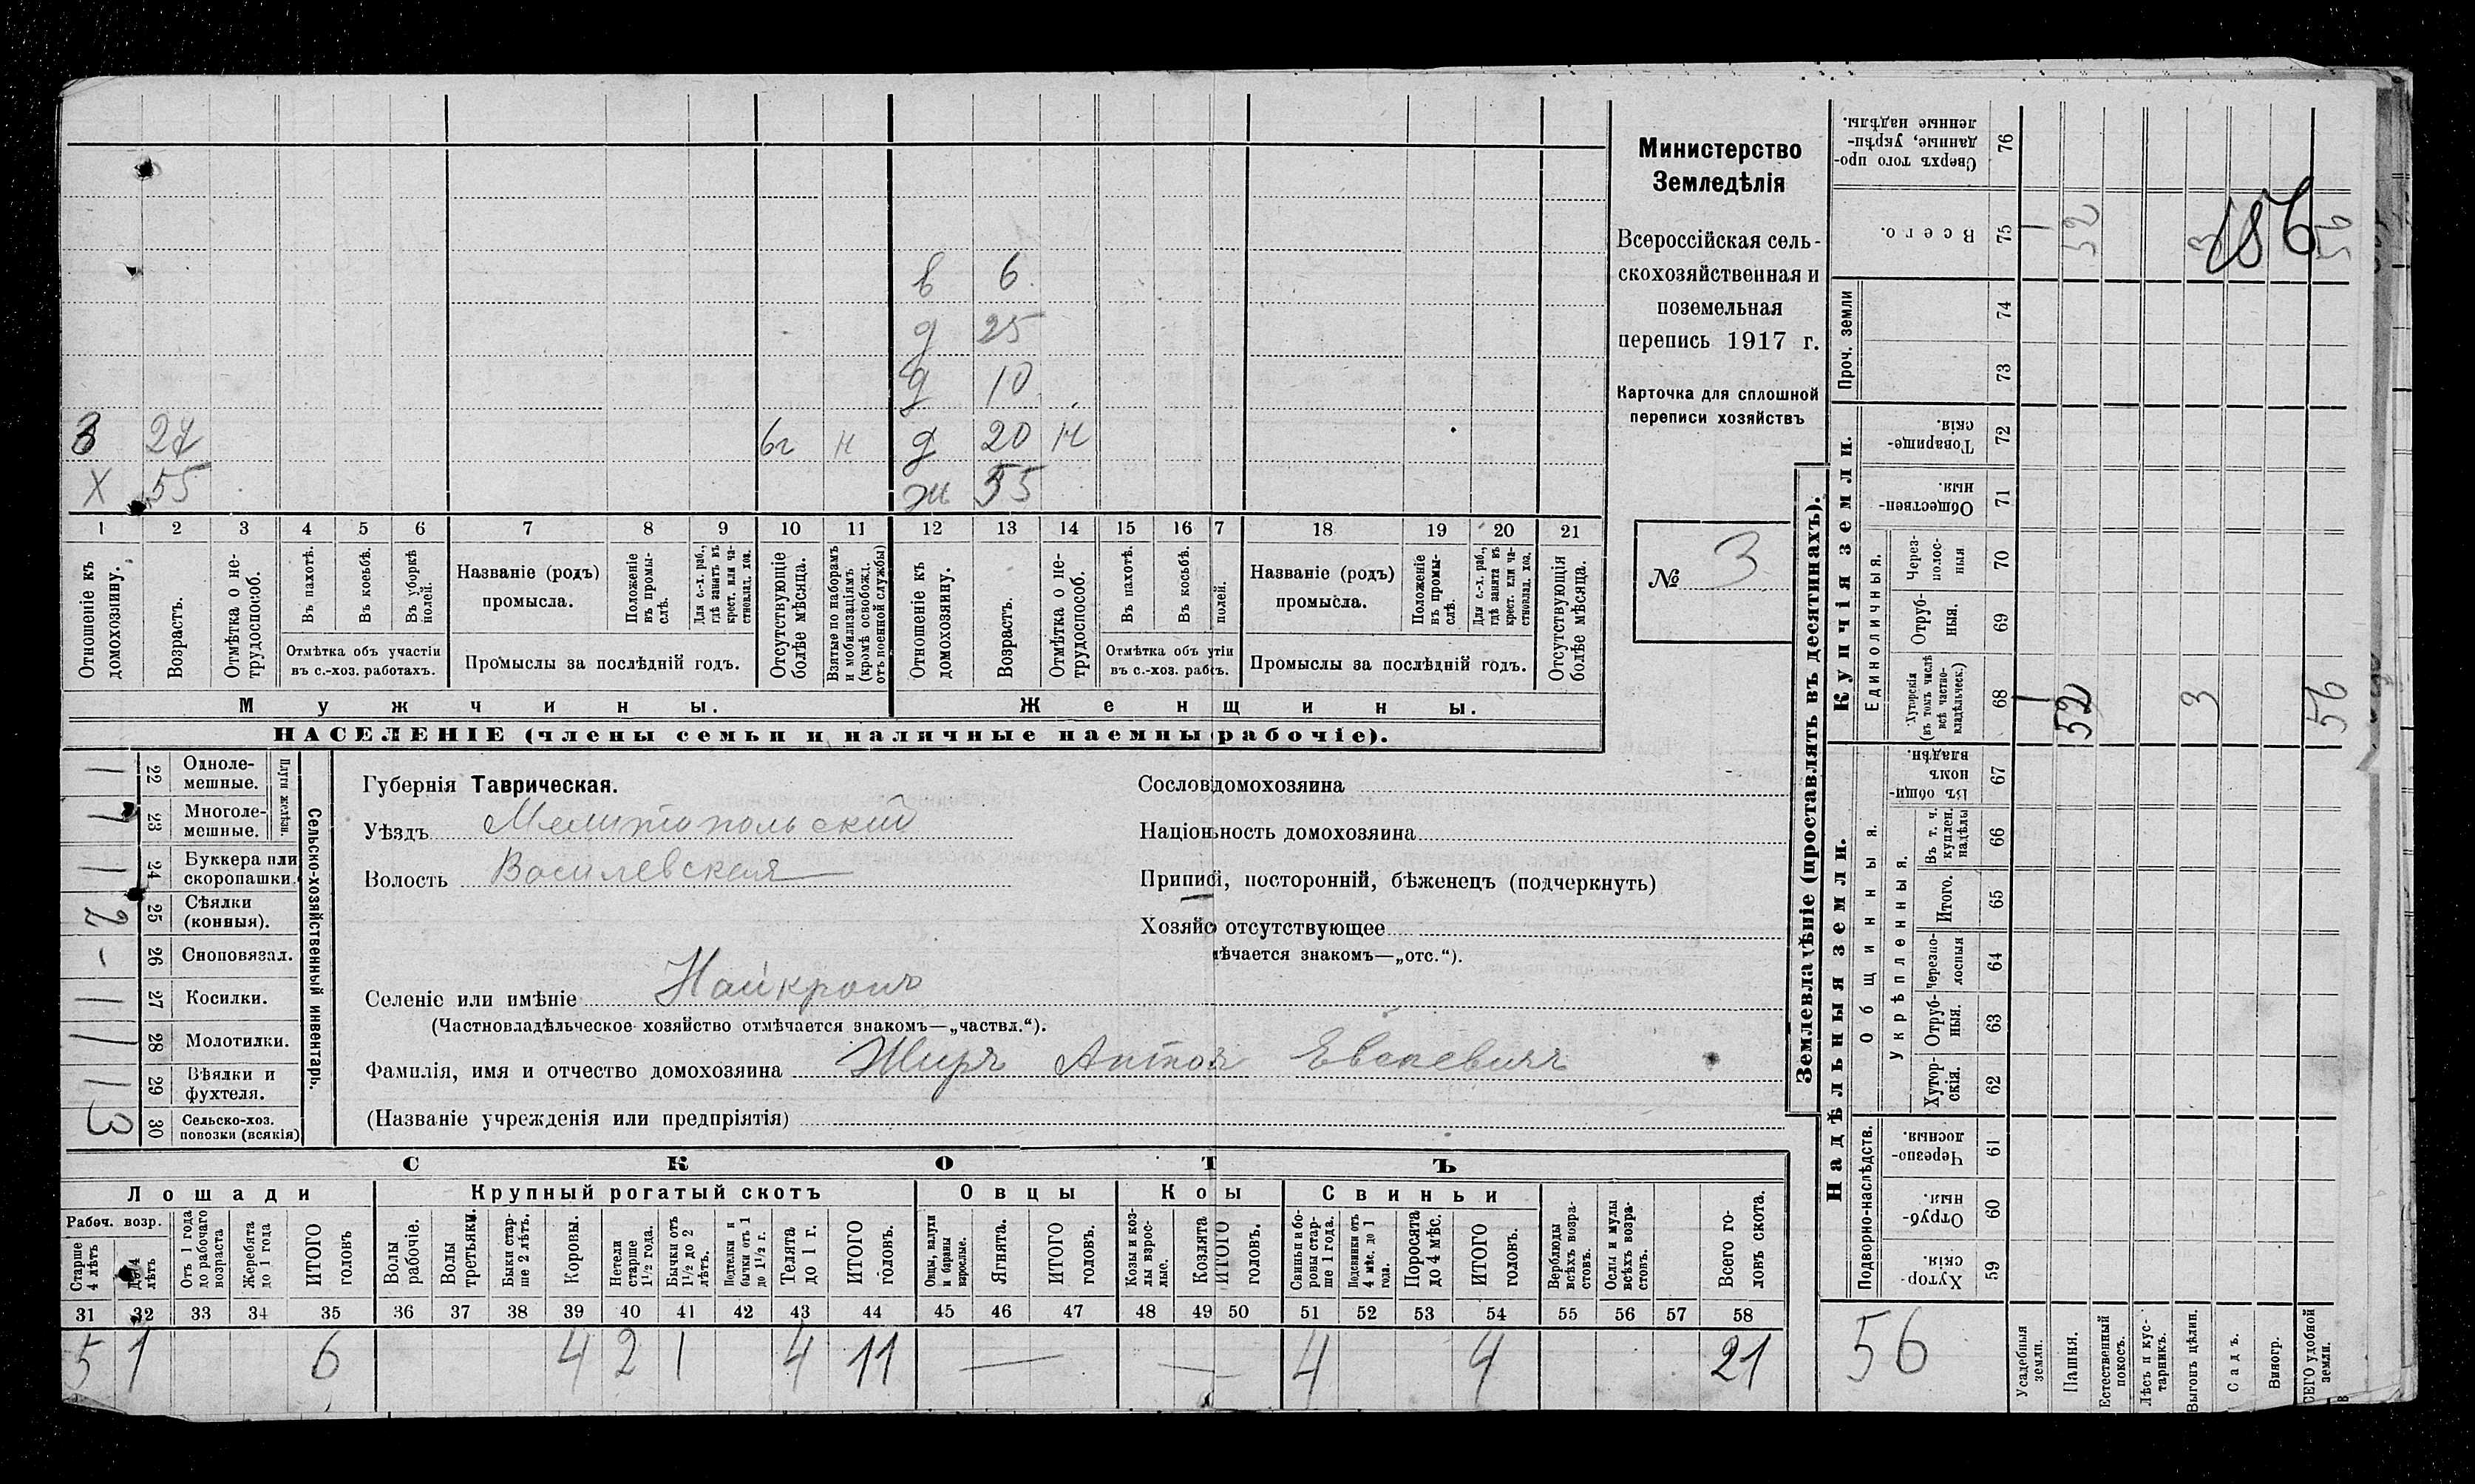 в 6
д 25
д 10
З 27 6г н д 20 н
Х 55 ж 55
1 2 3 4 5 6 7 8 9 10 11 12 13 14 15 16 7 18 19 20 21
Отношеніе къ домохозяину.
Возрастъ.
Отмѣтка о не-
трудоспособ.
Въ пахотѣ.
Въ косьбѣ.
Въ уборкѣ
полей.
Отмѣтка объ участіи
въ с.-хоз. работахъ.
Названіе (родъ)
промысла.
Положеніе
въ промы-
слѣ.
Для с.-х. раб.,
гдѣ занятъ въ
крест. или ча-
стновлад. хоз.
Промыслы за послѣдній годъ.
Отсутствующіе
болѣе мѣсяца.
Взятые по наборамъ
и мобилизаціямъ
(кромѣ освобожд.
отъ военной службы)
Отношеніе къ
домохозяину.
Возрастъ.
Отмѣтка о не-
трудоспособ.
Въ пахотѣ.
Въ косьбѣ.
полей.
Отмѣтка объ утіи
въ с.-хоз. рабъ.
Названіе (родъ)
промысла.
Положеніе
въ промы-
слѣ.
Для с.-х. раб.,
гдѣ занята въ
крест. или ча-
стновлад. хоз.
Промыслы за послѣдній годъ.
Отсутствующія
болѣе мѣсяца.
Мужчины. Женщины.
НАСЕЛЕНІЕ (члены семьи и наличные наемны рабочіе).
Министерство
Земледѣлія
Всероссійская сель-
скохозяйственная и
поземельная
перепись 1917 г.
Карточка для сплошной
переписи хозяйствъ
№ 3
Сельско-хозяйственный инвентарь.
Плуги желѣзн.
1 22 Одноле-
мешные.
1 23 Многоле-
мешные.
1 24 Буккера или
скоропашки
2 25 Сѣялки
(конныя).
- 26 Сноповязал.
1 27 Косилки.
1 28 Молотилки.
1 29 Вѣялки и
фухтеля.
3 30 Сельско-хоз.
повозки (всякія)
Губернія Таврическая.
Уѣздъ Мелитопольский
Волость Василевская
Селеніе или имѣніе Найкронъ
(Частновладѣльческое хозяйство отмѣчается знакомъ—„частвл.“).
Фамилія, имя и отчество домохозяина Жиръ Антон Евсеевичъ
(Названіе учрежденія или предпріятія)
Сослов домохозяина
Націоньность домохозяина
Припиой, посторонній, бѣженецъ (подчеркнуть)
Хозяйо отсутствующее
ѣчается знакомъ—„отс.“).
СКОТЪ
Лошади Крупный рогатый скотъ Овцы Козы Свиньи
Рабоч. возр.
Старше
4 лѣтъ
до 4
лѣтъ
Отъ 1 года
до рабочаго
возраста
Жеребята
до 1 года
ИТОГО
головъ
Волы
рабочіе.
Волы
третьяки.
Быки стар-
ше 2 лѣтъ.
Коровы.
Нетели
старше
1½ года.
Бычки отъ
1½ до 2
лѣтъ.
Подтелки и
бычки отъ 1
до 1½ г.
Телята
до 1 г.
ИТОГО
головъ.
Овцы, валухи
и бараны
взрослые.
Ягнята.
ИТОГО
головъ.
Козы и коз-
лы взрос-
лые.
Козлята
ИТОГО
головъ.
Свиньи и бо-
ровы стар-
ше 1 года.
Подсвинки отъ
4 мѣс. до 1
года.
Поросята
до 4 мѣс.
ИТОГО
головъ.
Верблюды
всѣхъ возра-
стовъ.
Ослы и мулы
всѣхъ возра-
стовъ.
Всего го-
ловъ скота.
31 32 33 34 35 36 37 38 39 40 41 42 43 44 45 46 47 48 49 50 51 52 53 54 55 56 57 58
5 1 6 4 2 1 4 11 — — 4 4 21
Землевладѣніе (проставлять въ десятинахъ).
Купчія земли.
Надѣльныя земли.
Сверхъ того про-
данные, укрѣп-
ленные надѣлы.
76
Всего. 75 1 52 3 56
186
Проч. земли
74
73
Товарище-
скія. 72
Обществен-
ныя. 71
Единоличныя.
Через-
полос-
ныя 70
Отруб-
ныя. 69
Хуторскія
(въ томъ числѣ
всѣ частно-
владѣльческ.) 68 1 52 3 56
Общинныя.
Въ общи-
номъ
владѣн. 67
Укрѣпленныя.
Въ т. ч.
куплен.
надѣлы 66
Итого. 65
Черезпо-
лосныя 64
Отруб-
ныя. 63
Хутор-
скія. 62
Подворно-наслѣдств.
Черезпо-
лосныя. 61
Отруб-
ныя. 60
Хутор-
скія. 59
56
Усадебныя
земли.
Пашня.
Естественный
покосъ.
Лѣсъ и кус-
тарникъ.
Выгонъ цѣлин.
Садъ.
Виногр.
ВСЕГО удобной
земли.